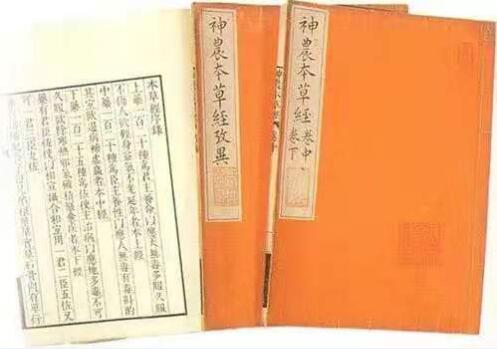 神農本草經 卷中
卷下
神農本草經攷異
本草經序錄
上藥一百二十種爲君主養命以應天無毒多服久服
不傷人欲輕身益氣不老延年者本上經
中藥一百二十種爲臣主養性以應人無毒有毒斟酌
其宜欲遏病補虛羸者本中經
下藥一百二十五種爲佐使主治病以應地多毒不可
久服欲除寒熱邪氣破積聚愈疾者本下經
藥有君臣佐使以相宣攝合和宜用一君二臣五佐又
可一君三臣九佐
根莖華實草石骨肉有單行